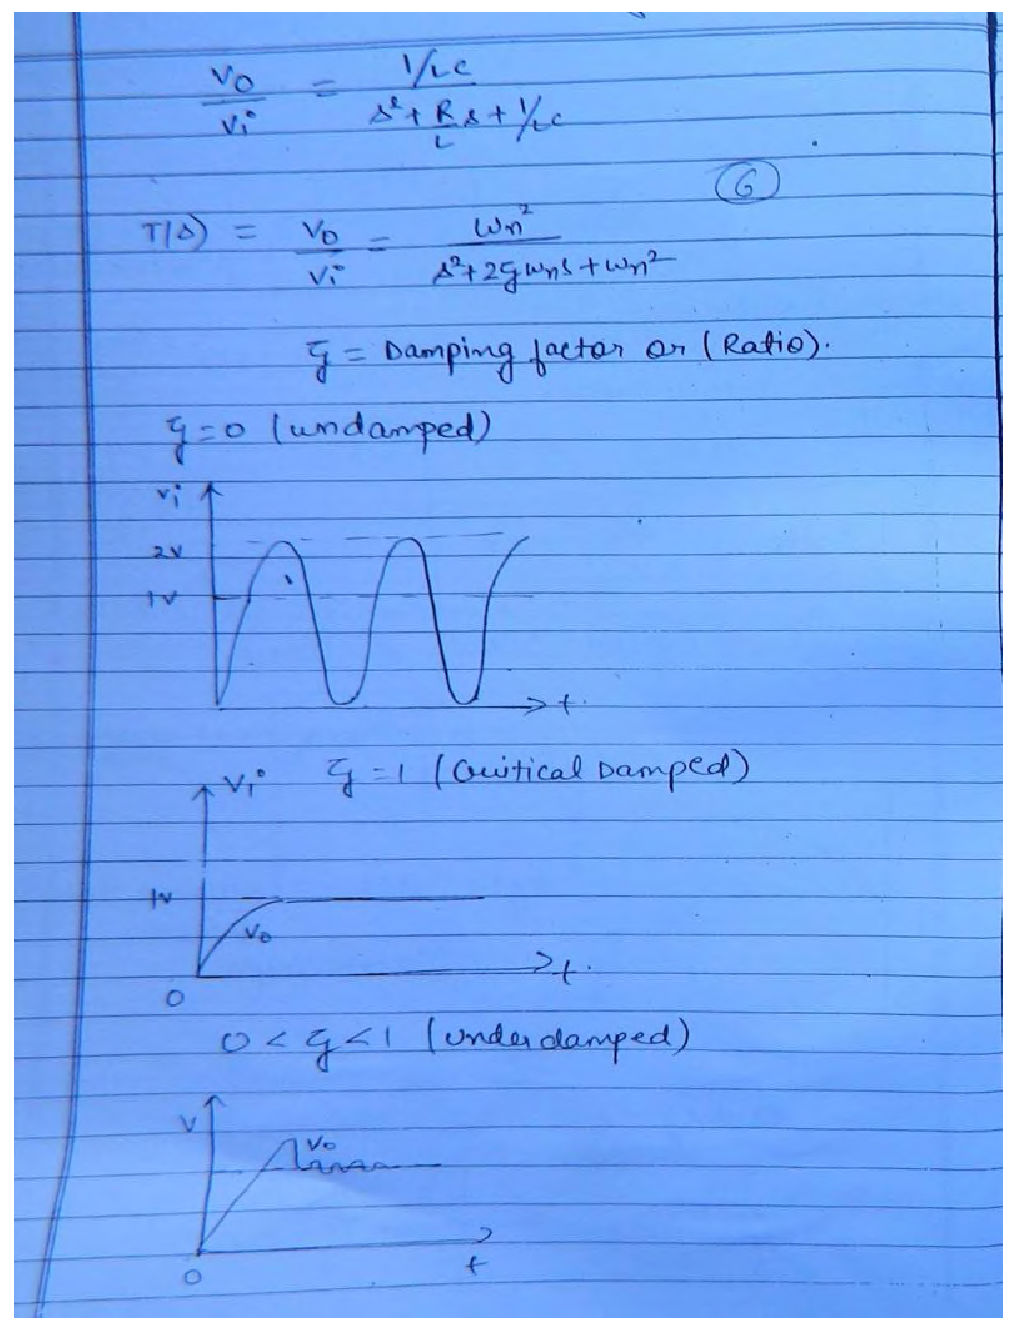 Vo/Vi = 1/LC / s²+R/L s+1/LC
6
T(s) = Vo/Vi = ωn² / s²+2ξωns+ωn²
ξ = Damping factor or (Ratio).
ξ=0 (undamped)
Vi
2V
1V
t.
Vi ξ=1 (Critical Damped)
1V
Vo
t.
0
0<ξ<1 (Underdamped)
V
Vo
0
t